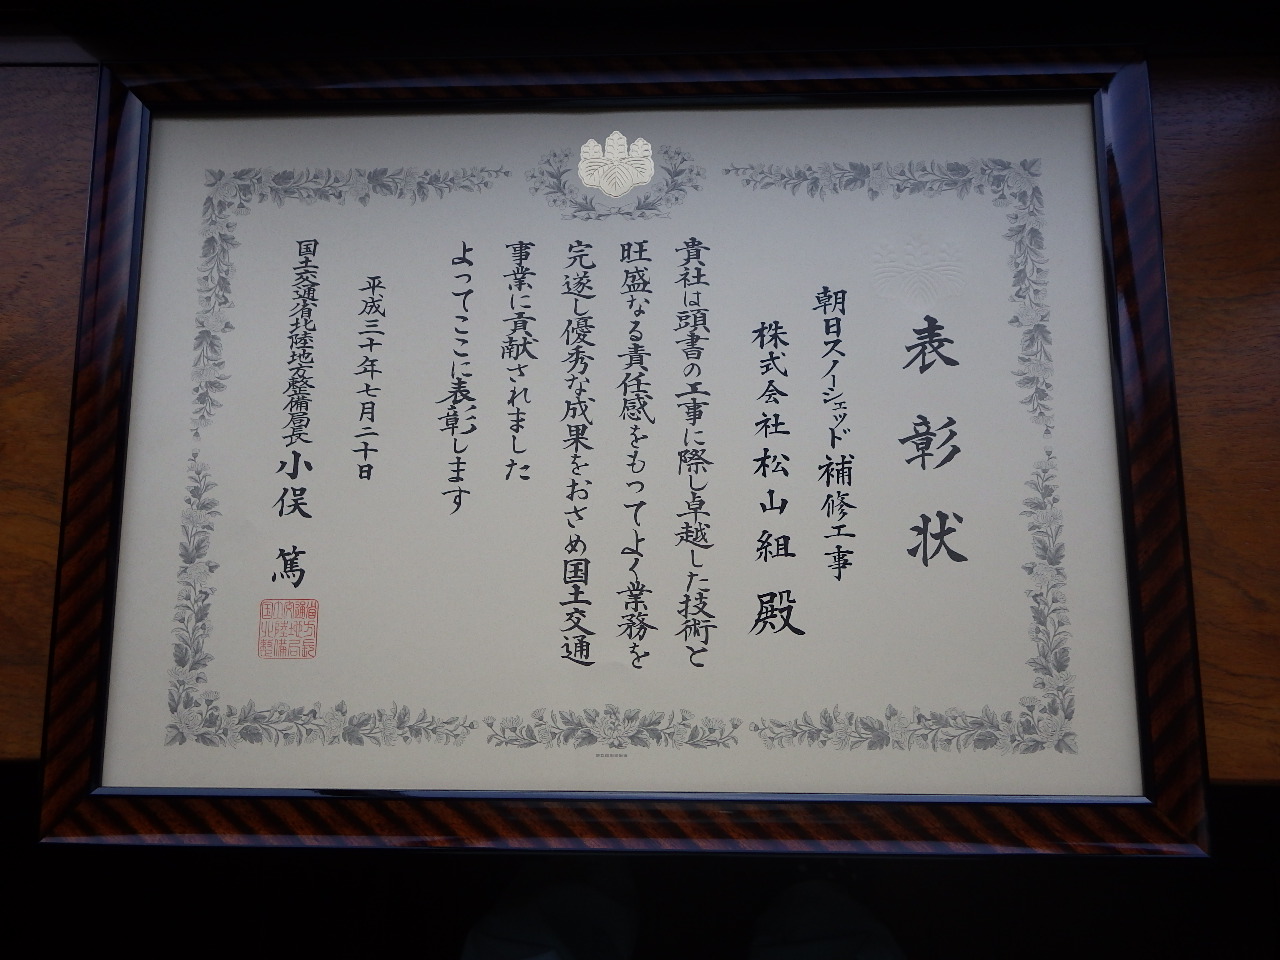 表彰状
朝日スノーシェッド補修工事
株式会社松山組 殿
貴社は頭書の工事に際し卓越した技術と
旺盛なる責任感をもってよく業務を
完遂し優秀な成果をおさめ国土交通
事業に貢献されました
よってここに表彰します
平成三十年七月二十日
国土交通省北陸地方整備局長 小俣 篤